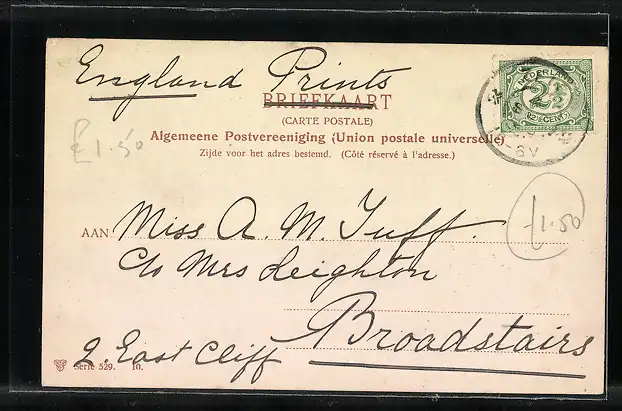 England Prints
BRIEFKAART
(CARTE POSTALE)
Algemeene Postvereeniging (Union postale universelle)
Zijde voor het adres bestemd. (Côté réservé à l'adresse.)
NEDERLAND
2½
CENT
£1.50
£1.50
AAN Miss A. M. Tuff.
c/o Mrs Leighton
Broadstairs
2. East Cliff
Serie 529. 10.